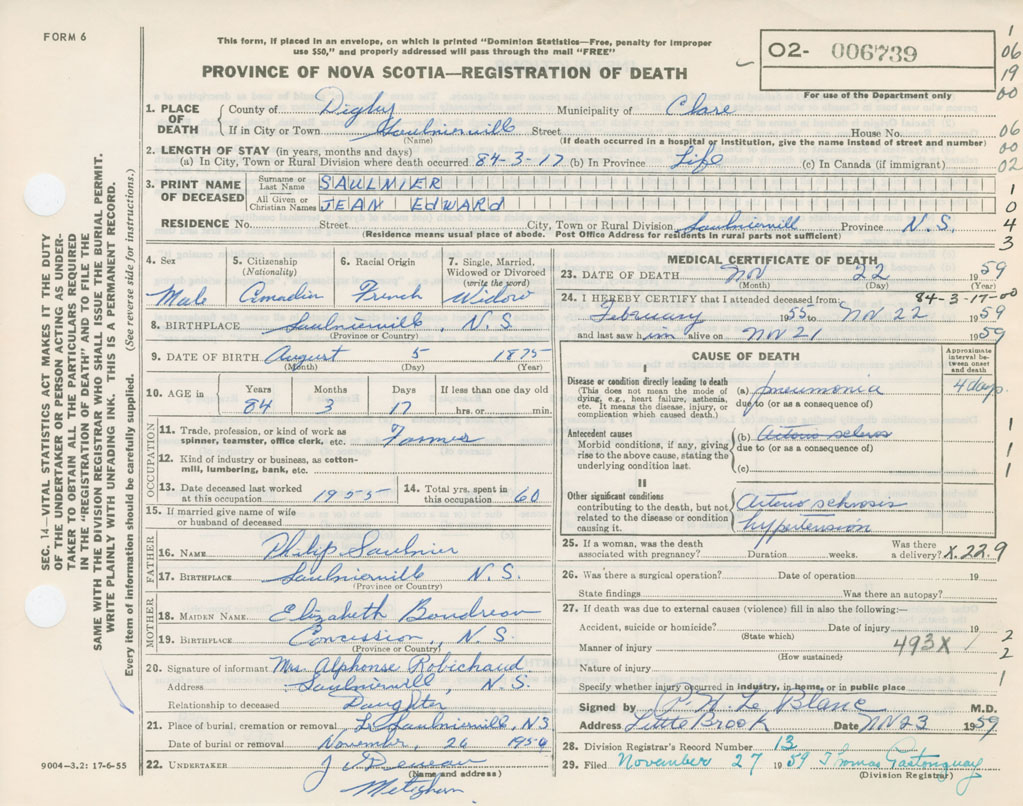 FORM 6
This form, if placed in an envelope, on which is printed "Dominion Statistics—Free, penalty for improper
use $50," and properly addressed will pass through the mail "FREE"
PROVINCE OF NOVA SCOTIA—REGISTRATION OF DEATH
02- 006739
For use of the Department only
1
06
19
00
06
00
02
1
0
4
3
SEC. 14—VITAL STATISTICS ACT MAKES IT THE DUTY
OF THE UNDERTAKER OR PERSON ACTING AS UNDER-
TAKER TO OBTAIN ALL THE PARTICULARS REQUIRED
IN THE "REGISTRATION OF DEATH" AND TO FILE THE
SAME WITH THE DIVISION REGISTRAR WHO SHALL ISSUE THE BURIAL PERMIT.
WRITE PLAINLY WITH UNFADING INK. THIS IS A PERMANENT RECORD.
Every item of information should be carefully supplied. (See reverse side for instructions.)
1. PLACE OF DEATH County of Digby Municipality of Clare
If in City or Town Saulnierville Street House No.
(Name) (If death occurred in a hospital or institution, give the name instead of street and number)
2. LENGTH OF STAY (in years, months and days)
(a) In City, Town or Rural Division where death occurred 84-3-17 (b) In Province Life (c) In Canada (if immigrant)
3. PRINT NAME OF DECEASED
Surname or Last Name SAULNIER
All Given or Christian Names JEAN EDWARD
RESIDENCE No. Street City, Town or Rural Division Saulnierville Province N.S.
(Residence means usual place of abode. Post Office Address for residents in rural parts not sufficient)
4. Sex Male
5. Citizenship (Nationality) Canadian
6. Racial Origin French
7. Single, Married, Widowed or Divorced (write the word) Widow
8. BIRTHPLACE Saulnierville, N.S.
(Province or Country)
9. DATE OF BIRTH August 5 1875
(Month) (Day) (Year)
10. AGE in Years Months Days If less than one day old
84 3 17 hrs. or min.
OCCUPATION
11. Trade, profession, or kind of work as
spinner, teamster, office clerk, etc. Farmer
12. Kind of industry or business, as cotton-
mill, lumbering, bank, etc.
13. Date deceased last worked at this occupation 1955
14. Total yrs. spent in this occupation 60
15. If married give name of wife
or husband of deceased
FATHER
16. NAME Philip Saulnier
17. BIRTHPLACE Saulnierville N.S.
(Province or Country)
MOTHER
18. MAIDEN NAME Elizabeth Boudreau
19. BIRTHPLACE Concession, N.S.
(Province or Country)
20. Signature of informant Mrs. Alphonse Robichaud
Address Saulnierville, N.S.
Relationship to deceased Daughter
21. Place of burial, cremation or removal L. Saulnierville, N.S
Date of burial or removal November, 26 1959
22. UNDERTAKER
(Name and address)
9004—3.2: 17-6-55
MEDICAL CERTIFICATE OF DEATH
23. DATE OF DEATH Nov 22 1959
(Month) (Day) (Year)
84-3-17-00
24. I HEREBY CERTIFY that I attended deceased from:
February 1955 to Nov 22 1959
and last saw him alive on Nov 21 1959
CAUSE OF DEATH
Approximate interval between onset and death
I
Disease or condition directly leading to death (a) pneumonia 4 days
(This does not mean the mode of
dying, e.g., heart failure, asthenia,
etc. It means the disease, injury, or
complication which caused death.)
due to (or as a consequence of)
Antecedent causes (b) Arterio scleros
Morbid conditions, if any, giving
rise to the above cause, stating the
underlying condition last.
due to (or as a consequence of)
(c)
1
1
1
II
Other significant conditions
contributing to the death, but not
related to the disease or condition
causing it.
Arterio schrosis
hypertension
25. If a woman, was the death
associated with pregnancy? Duration weeks. Was there a delivery?
X.22.9
26. Was there a surgical operation? Date of operation 19
State findings Was there an autopsy?
27. If death was due to external causes (violence) fill in also the following:—
Accident, suicide or homicide? Date of injury 19
(State which)
Manner of injury 493X
(How sustained)
Nature of injury
2
2
1
Specify whether injury occurred in industry, in home, or in public place
Signed by P. H. Le Blanc M.D.
Address Little Brook Date Nov 23 1959
28. Division Registrar's Record Number 13
29. Filed November 27 1959 Thomas Gastonguay
(Division Registrar)